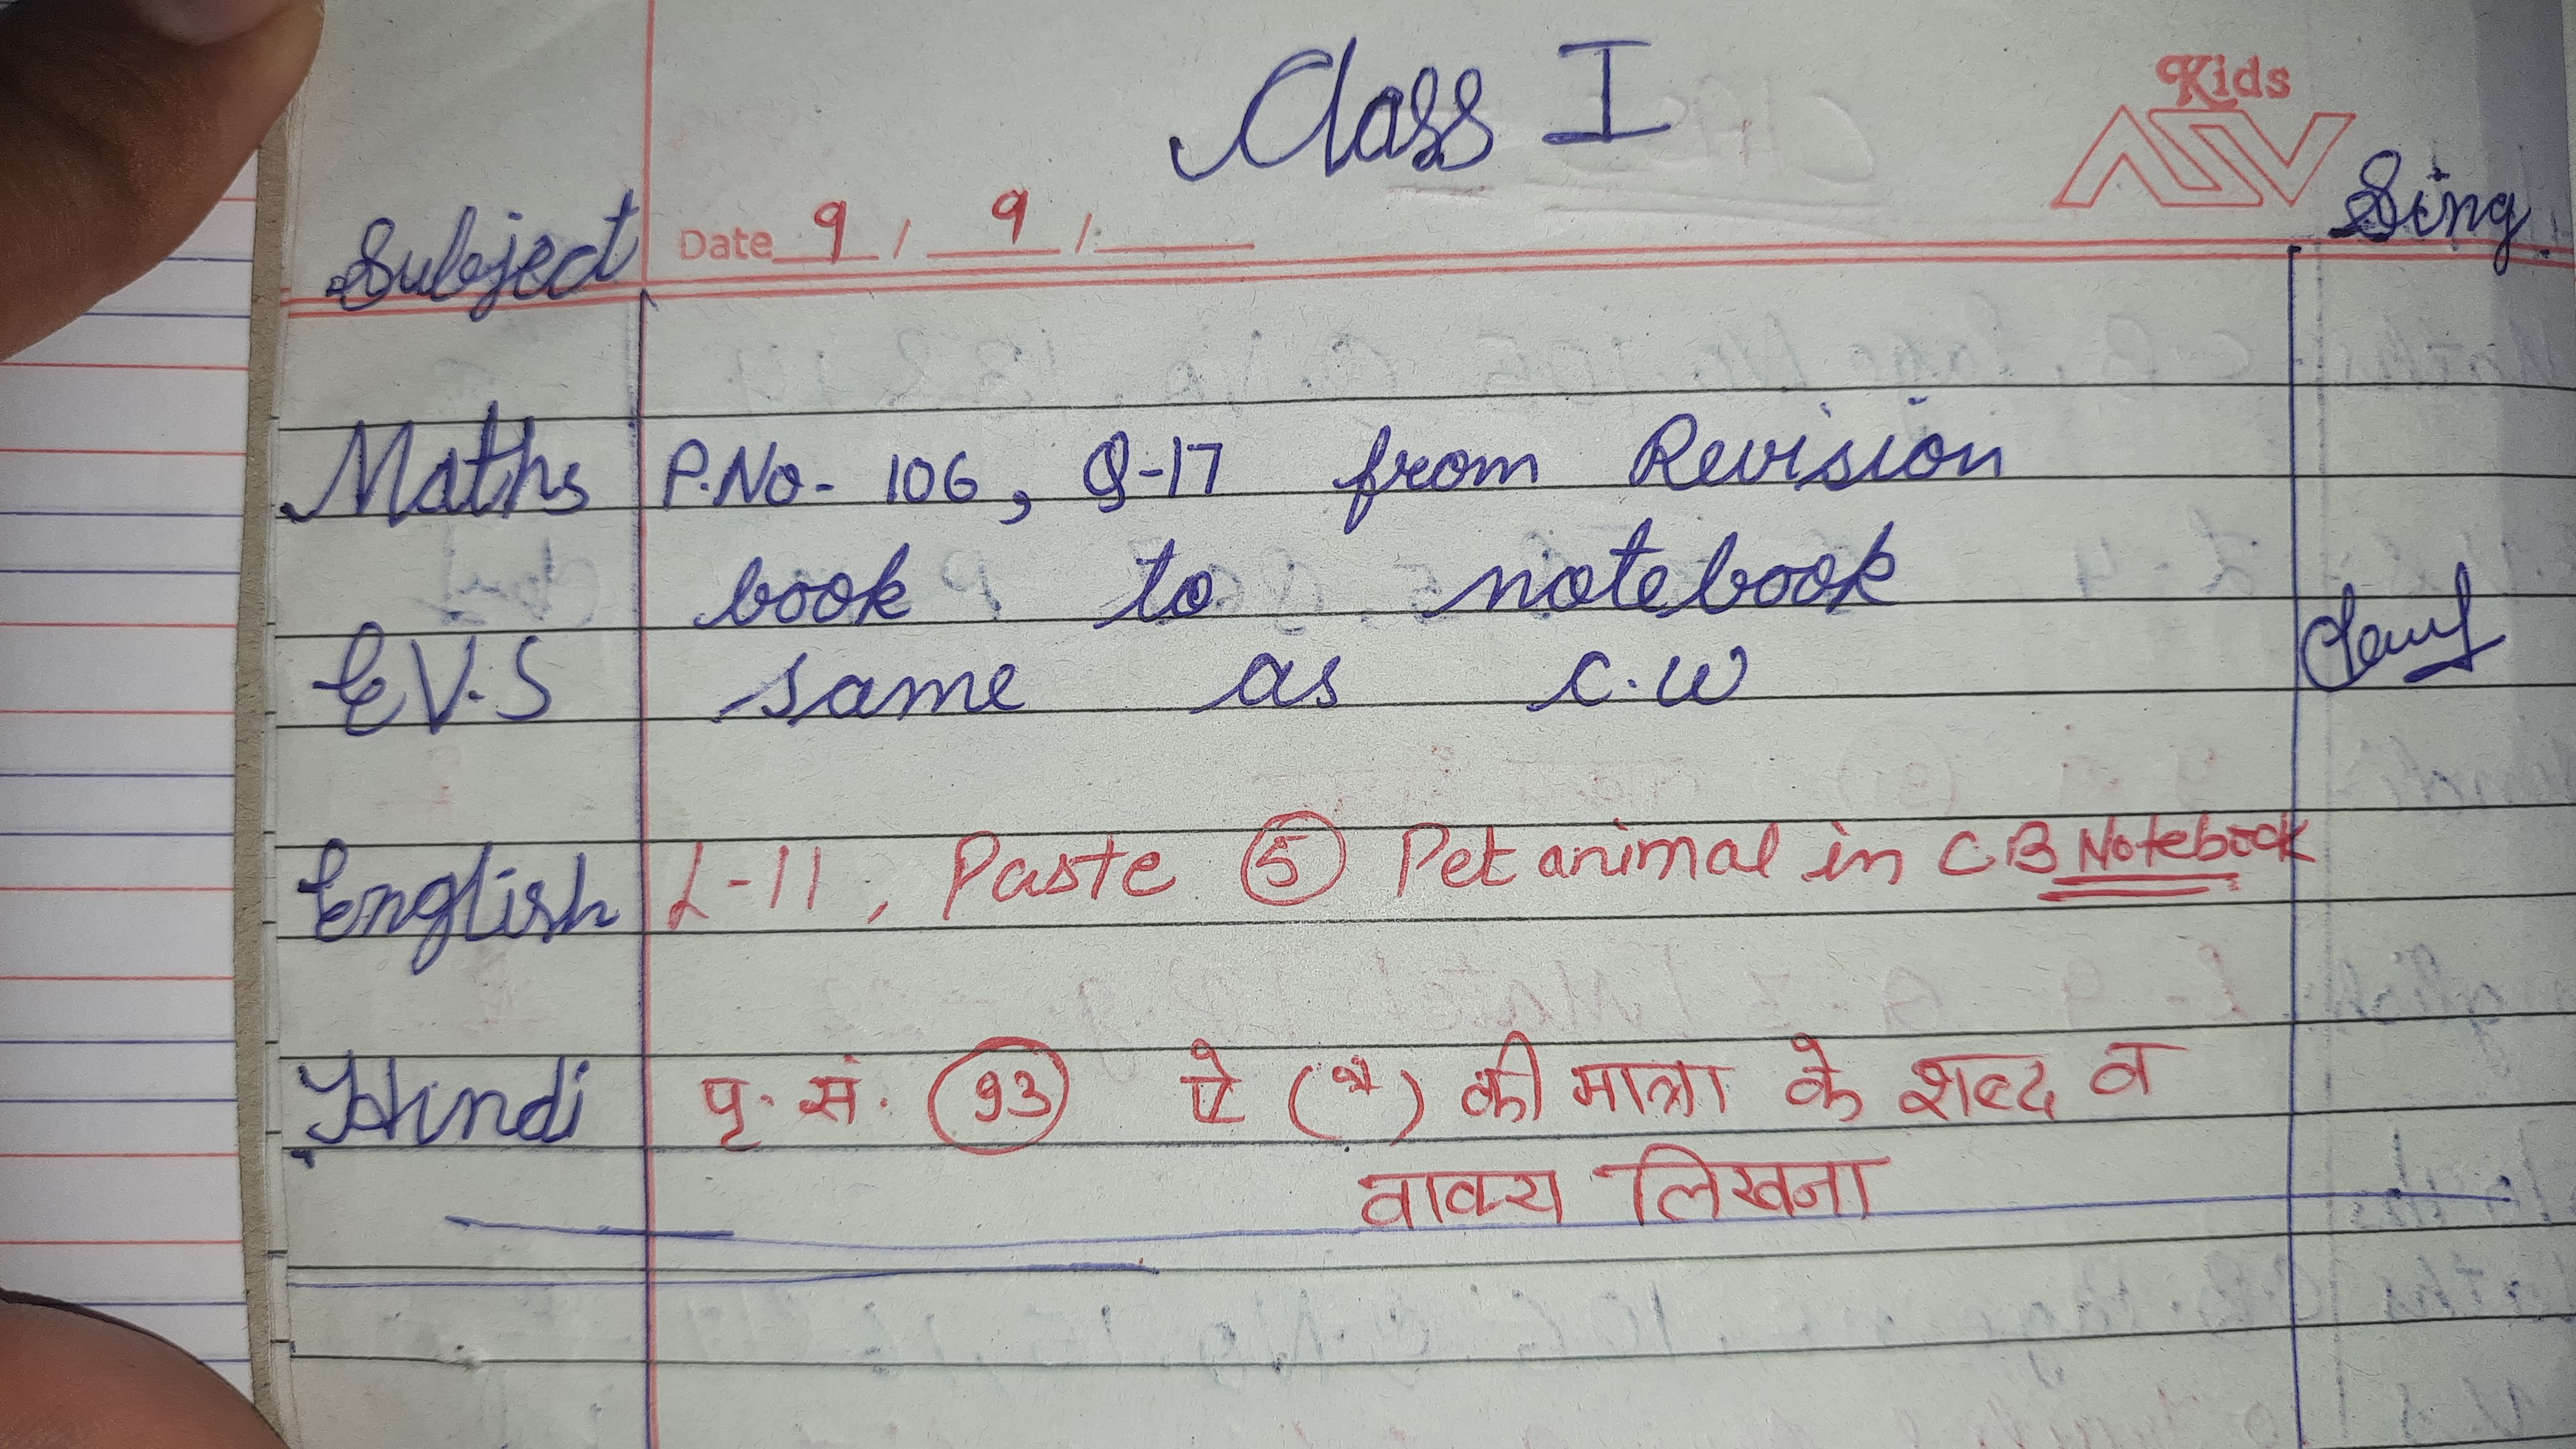 Class I
Kids
ASV
Subject Date 9 / 9 / Sing.
Maths P.No- 106, Q-17 from Revision
book to notebook
E.V.S same as C.W
English L-11, Paste 5 Pet animal in CB Notebook
Hindi पृ. सं. 93 ऐ (ै) की मात्रा के शब्द व
वाक्य लिखना